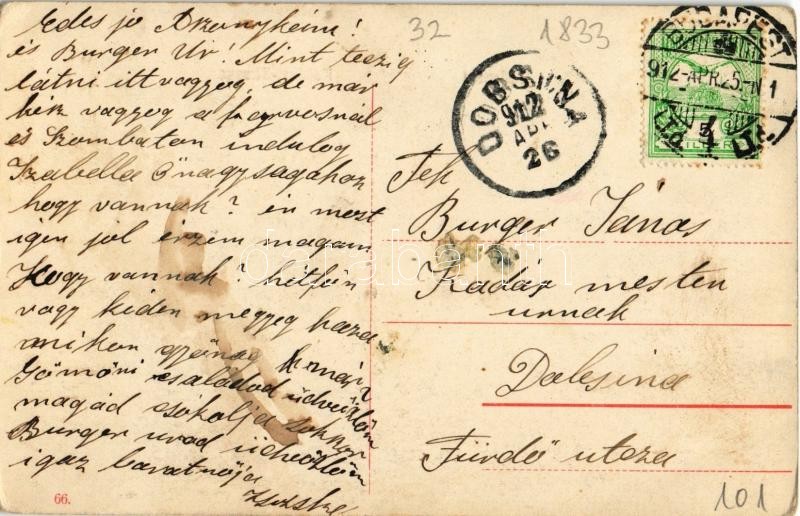 Édes jó Aranykéim!
és Burger Ur! Mint teczig
látni itt vagyog, de már
kék vagyog a fogrvosnál
és Szombaton indulog
Izabella Önagyságához
hogy vannak? én mest
igen jól érzem magam
Hogy vannak? hétfőn
vagy kiden megyeg haza
mikor
Gömöri családod üdvözlöm
magád csókolja sokkor
Burger urad üdvözlöm
igaz baratnőja
66.
32
1833
DOBSINA
912
APR
26
BUDAPEST
912-APR.25-N1
5
FILLÉR
4
Tek
Burger János
Kadár mester
urnak
Dobsina
Fürdő utcza
101
darabanth